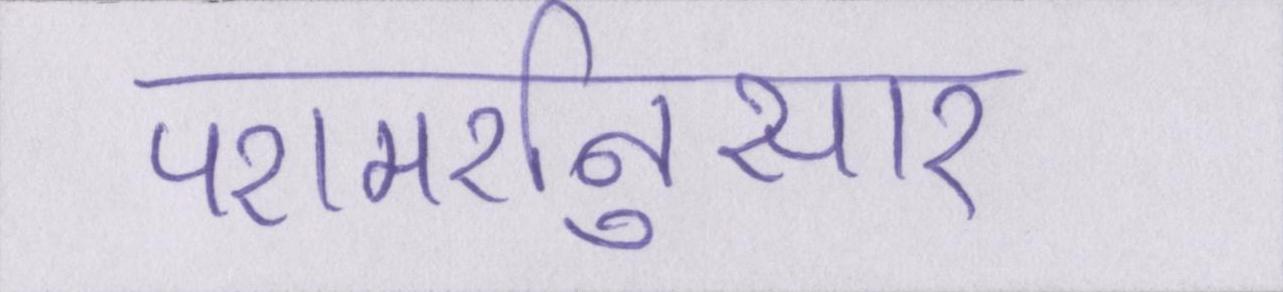 परामर्शनुसार